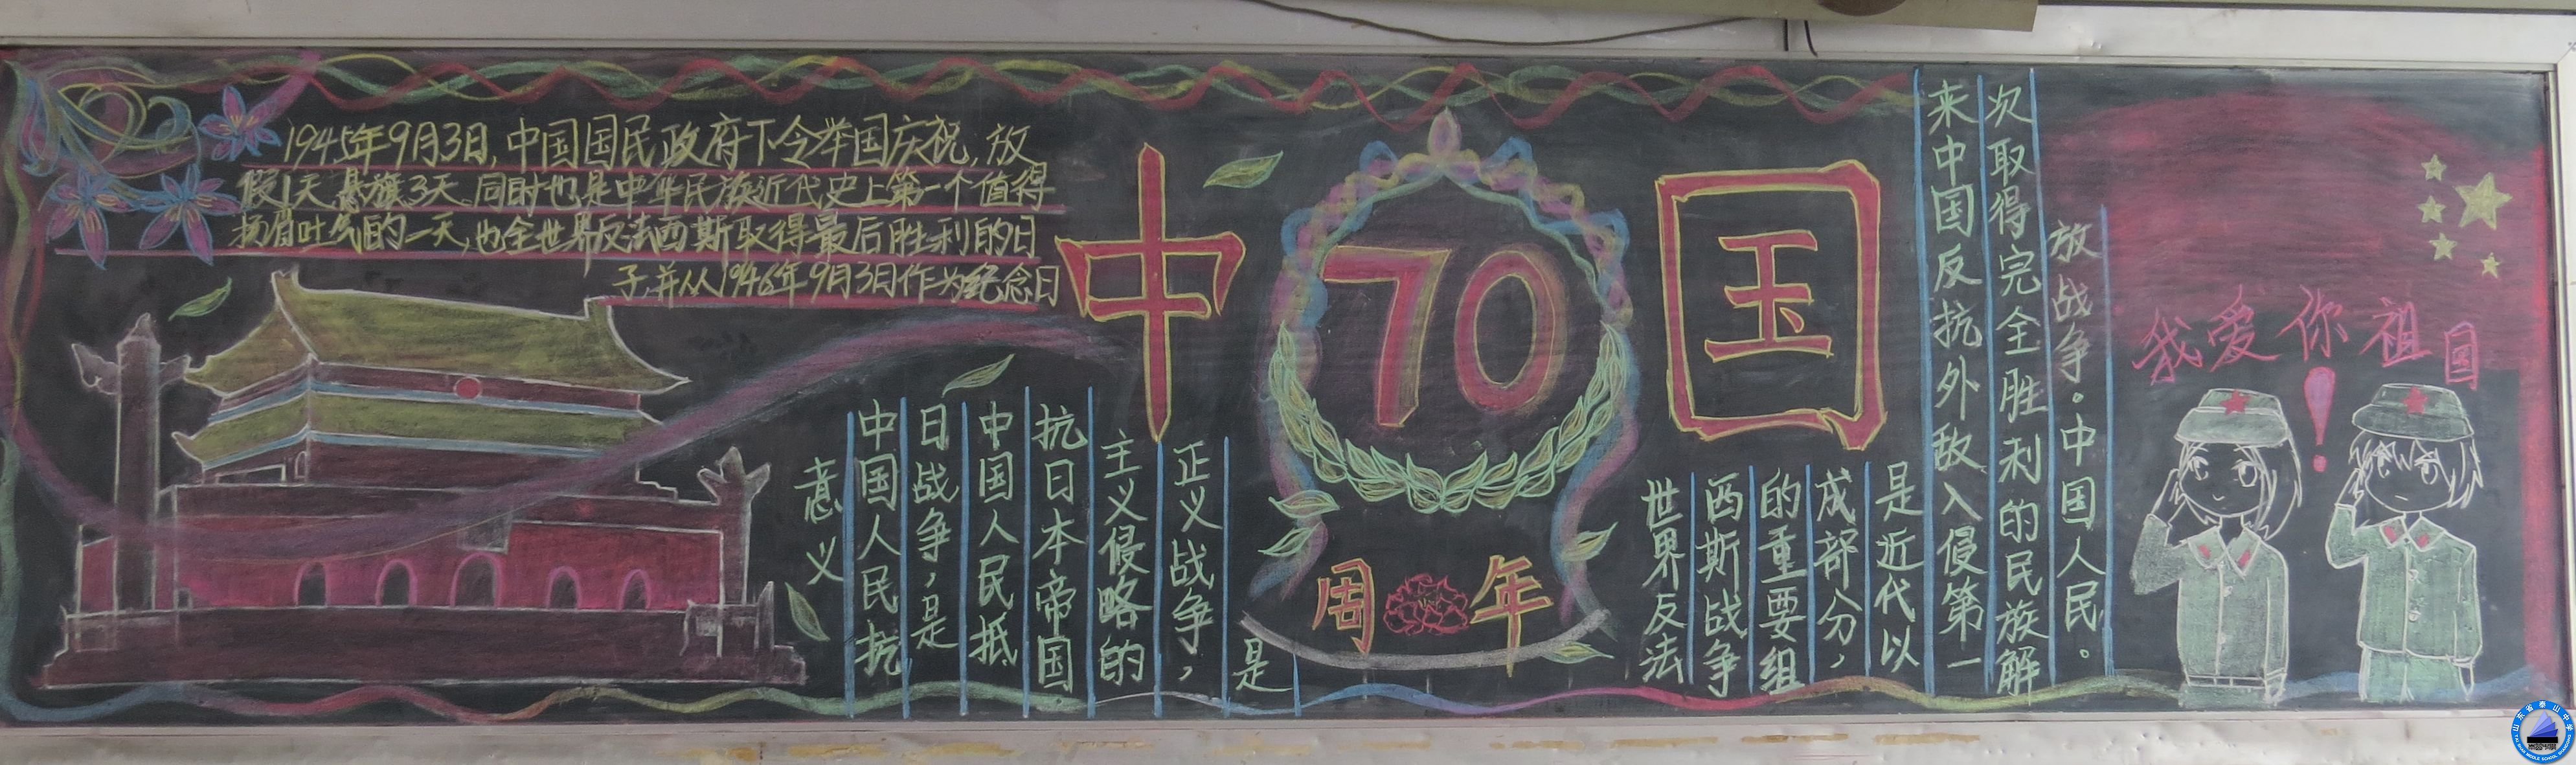 1945年9月3日,中国国民政府下令举国庆祝,放
假1天,悬旗3天.同时也是中华民族近代史上第一个值得
扬眉吐气的一天,也全世界反法西斯取得最后胜利的日
子,并从1946年9月3日作为纪念日
中
70
国
周年
意义
中国人民抗
日战争,是
中国人民抵
抗日本帝国
主义侵略的
正义战争,
是
世界反法
西斯战争
的重要组
成部分,
是近代以
来中国反抗外敌入侵第一
次取得完全胜利的民族解
放战争。中国人民。
我爱你祖国
!